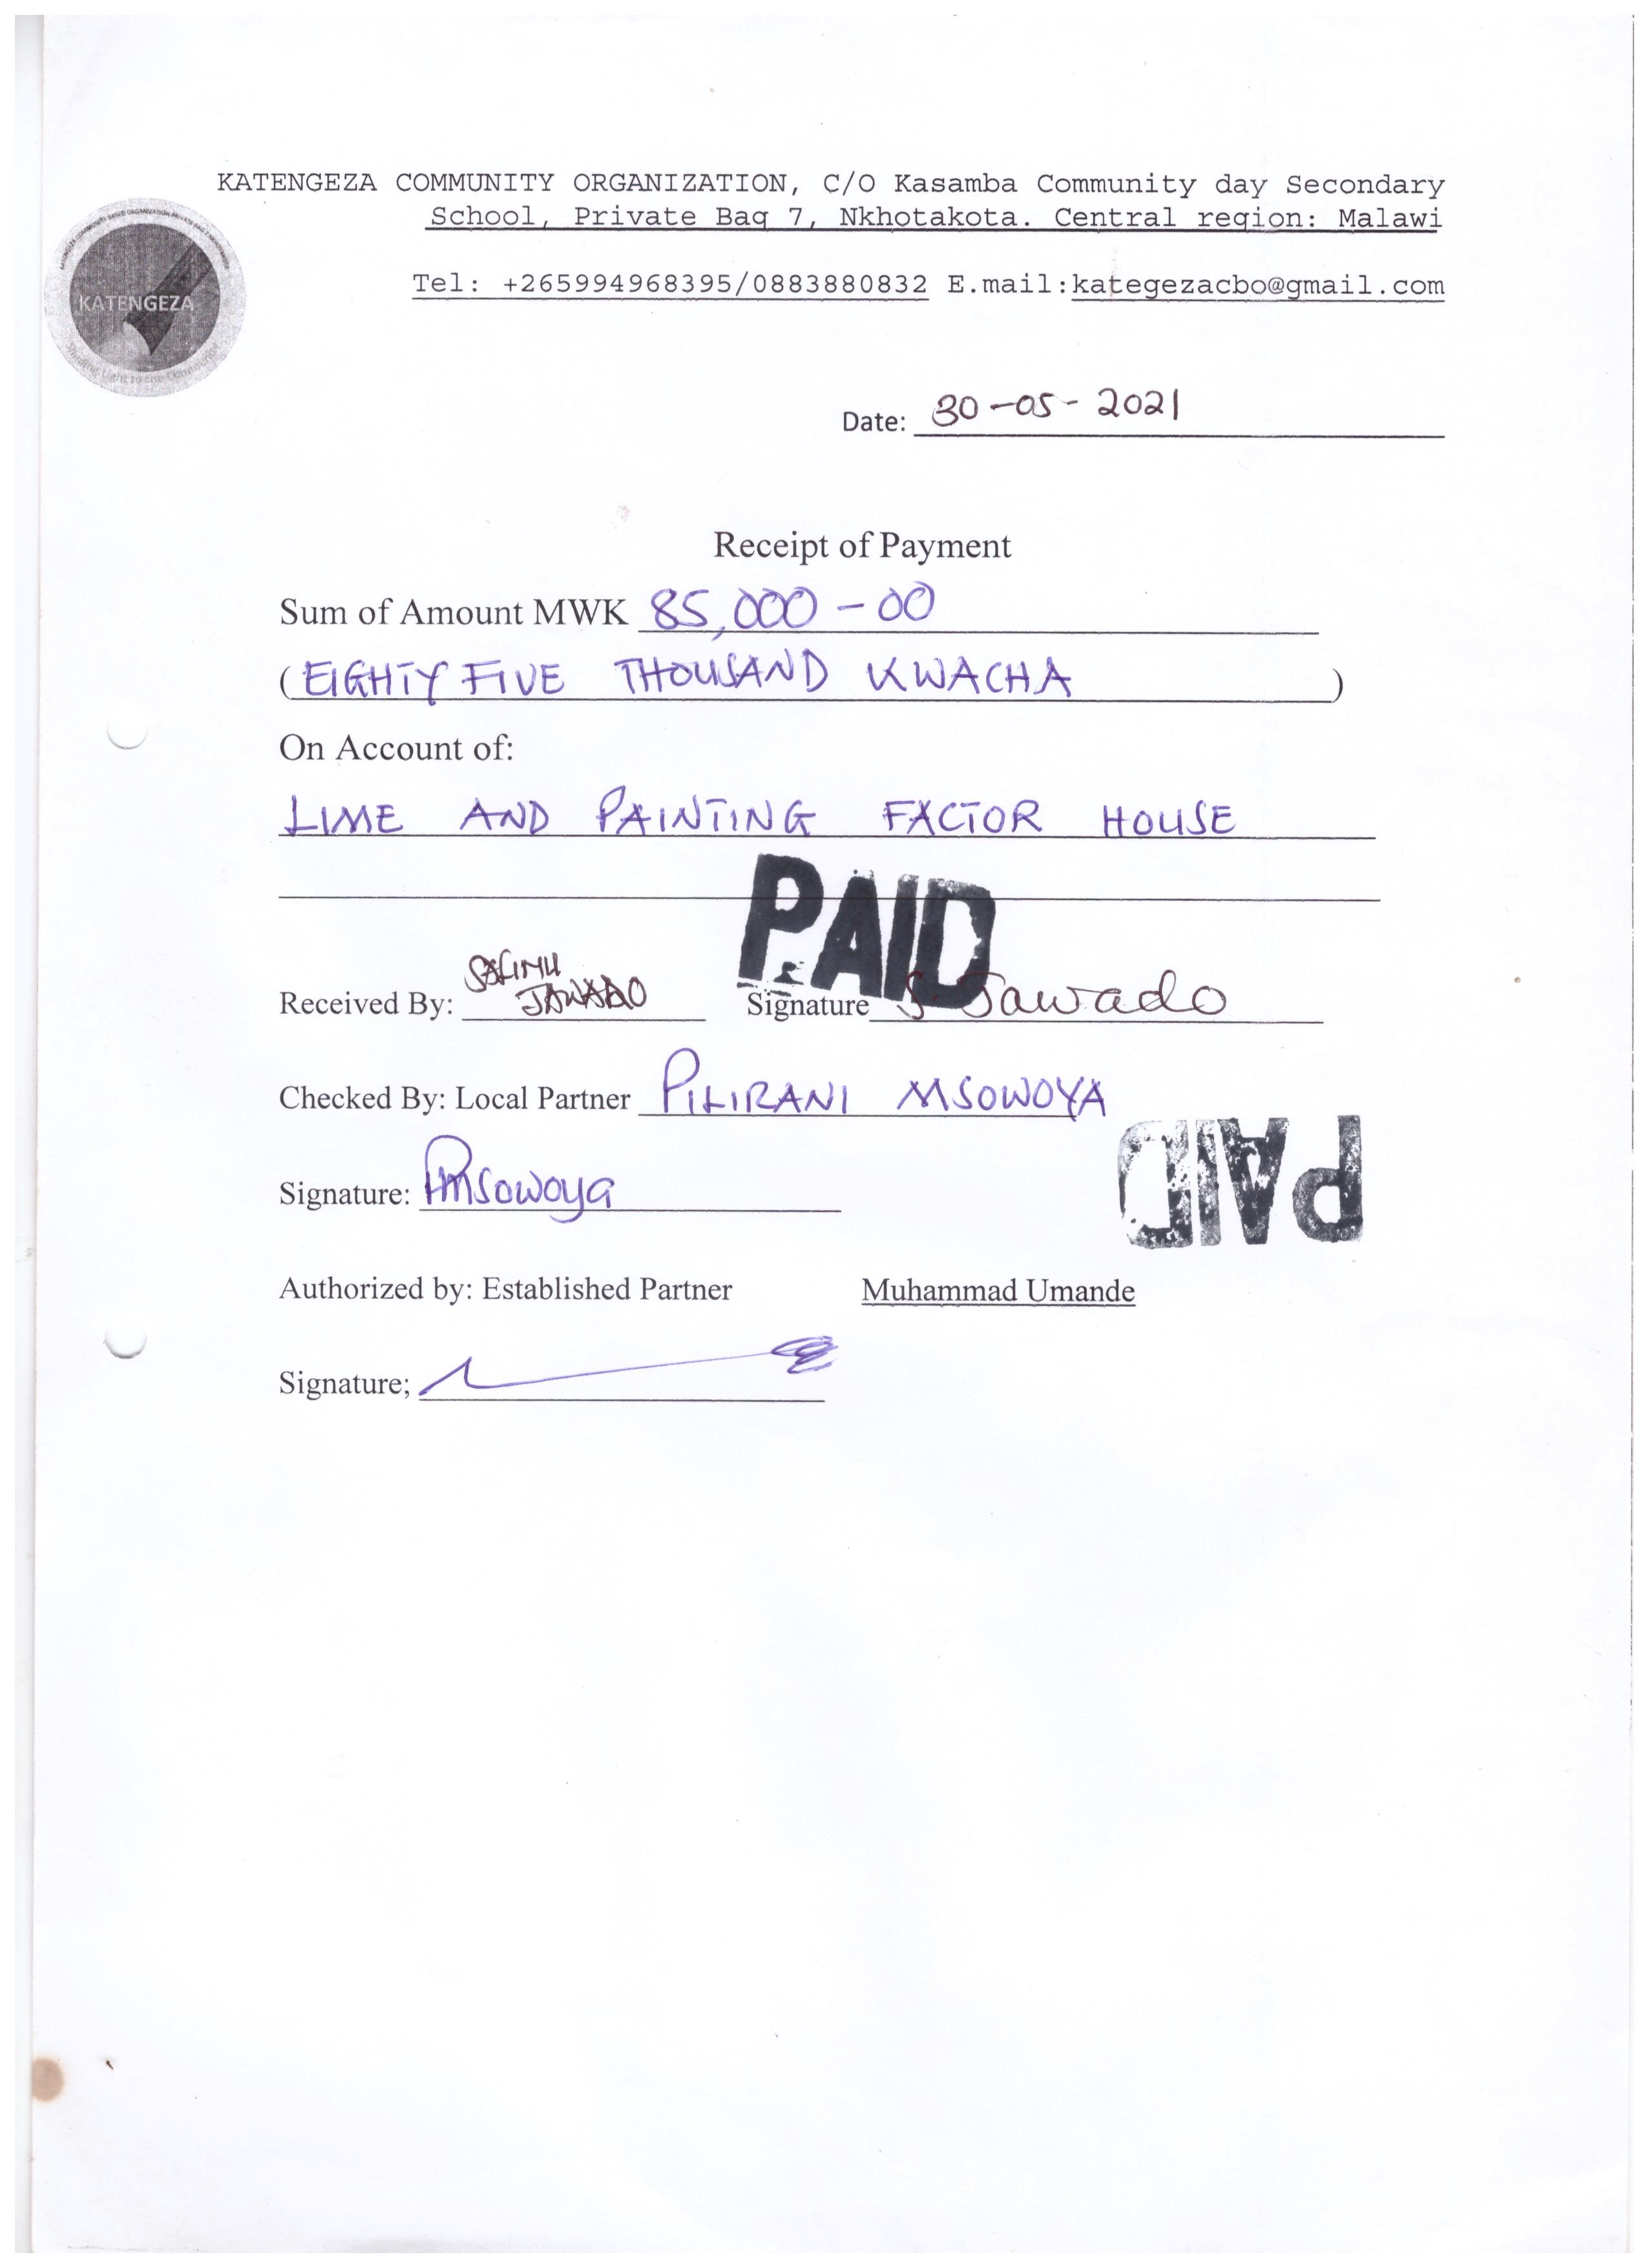 KATENGEZA COMMUNITY ORGANIZATION, C/O Kasamba Community day Secondary
School, Private Bag 7, Nkhotakota. Central region: Malawi
KATENGEZA
Tel: +265994968395/0883880832 E.mail:kategezacbo@gmail.com
Date: 30-05-2021
Receipt of Payment
Sum of Amount MWK 85,000-00
(EIGHTY FIVE THOUSAND KWACHA)
On Account of:
LIME AND PAINTING FACTOR HOUSE
PAID
Received By: SALIMU JAWADO Signature S. Jawado
Checked By: Local Partner PILIRANI MSOWOYA
PAID
Signature: PMsowoya
Authorized by: Established Partner Muhammad Umande
Signature;